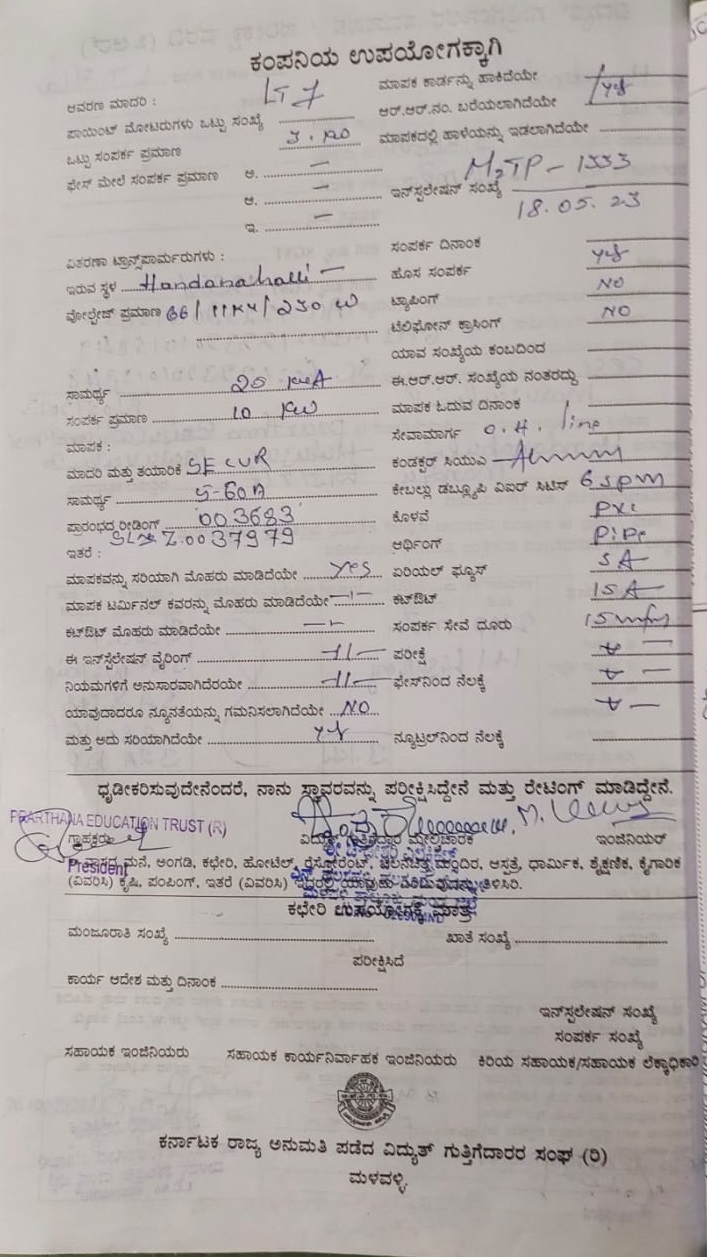 ಕಂಪನಿಯ ಉಪಯೋಗಕ್ಕಾಗಿ
ಆವರಣ ಮಾದರಿ : LT 7
ಪಾಯಿಂಟ್ ಮೋಟರುಗಳು ಒಟ್ಟು ಸಂಖ್ಯೆ
ಒಟ್ಟು ಸಂಪರ್ಕ ಪ್ರಮಾಣ
ಫೇಸ್ ಮೇಲೆ ಸಂಪರ್ಕ ಪ್ರಮಾಣ ಅ. —
ಆ. —
ಇ. —
ಮಾಪಕ ಕಾರ್ಡನ್ನು ಹಾಕಿದೆಯೇ
ಆರ್.ಆರ್.ನಂ. ಬರೆಯಲಾಗಿದೆಯೇ yes
ಮಾಪಕದಲ್ಲಿ ಹಾಳೆಯನ್ನು ಇಡಲಾಗಿದೆಯೇ
ಇನ್‌ಸ್ಟಲೇಷನ್ ಸಂಖ್ಯೆ M2TP - 1333
18.05.23
ವಿತರಣಾ ಟ್ರಾನ್ಸ್‌ಪಾರ್ಮರುಗಳು :
ಇರುವ ಸ್ಥಳ Handanahalli —
ವೋಲ್ಟೇಜ್ ಪ್ರಮಾಣ 66 / 11KV / 230 W
ಸಾಮರ್ಥ್ಯ 25 KVA
ಸಂಪರ್ಕ ಪ್ರಮಾಣ 10 KW
ಮಾಪಕ :
ಮಾದರಿ ಮತ್ತು ತಯಾರಿಕೆ SECUR
ಸಾಮರ್ಥ್ಯ 5-60A
ಪ್ರಾರಂಭದ ರೀಡಿಂಗ್ 003683
Z.0037979
ಇತರೆ :
ಮಾಪಕವನ್ನು ಸರಿಯಾಗಿ ಮೊಹರು ಮಾಡಿದೆಯೇ yes
ಮಾಪಕ ಟರ್ಮಿನಲ್ ಕವರನ್ನು ಮೊಹರು ಮಾಡಿದೆಯೇ —"—
ಕಟ್‌ಔಟ್ ಮೊಹರು ಮಾಡಿದೆಯೇ —"—
ಈ ಇನ್‌ಸ್ಟೆಲೇಷನ್ ವೈರಿಂಗ್ —11—
ನಿಯಮಗಳಿಗೆ ಅನುಸಾರವಾಗಿದೆರಯೇ —11—
ಯಾವುದಾದರೂ ನ್ಯೂನತೆಯನ್ನು ಗಮನಿಸಲಾಗಿದೆಯೇ NO
ಮತ್ತು ಅದು ಸರಿಯಾಗಿದೆಯೇ yes
ಸಂಪರ್ಕ ದಿನಾಂಕ
ಹೊಸ ಸಂಪರ್ಕ yes
ಟ್ಯಾಪಿಂಗ್ NO
ಟೆಲಿಫೋನ್ ಕ್ರಾಸಿಂಗ್ NO
ಯಾವ ಸಂಖ್ಯೆಯ ಕಂಬದಿಂದ
ಈ.ಆರ್.ಆರ್. ಸಂಖ್ಯೆಯ ನಂತರದ್ದು
ಮಾಪಕ ಓದುವ ದಿನಾಂಕ
ಸೇವಾಮಾರ್ಗ O.H. line
ಕಂಡಕ್ಟರ್ ಸಿಯುಎ
ಕೇಬಲ್ಲು ಡಬ್ಲ್ಯೂಪಿ ವಿಐರ್ ಸಿಟಿಸ್ 6 sqmm
ಕೊಳವೆ PVC
ಆರ್ಥಿಂಗ್ Pipe
ಏರಿಯಲ್ ಫ್ಯೂಸ್ 5A
ಕಟ್‌ಔಟ್ 15A
ಸಂಪರ್ಕ ಸೇವೆ ದೂರು
ಪರೀಕ್ಷೆ
ಫೇಸ್‌ನಿಂದ ನೆಲಕ್ಕೆ
ನ್ಯೂಟ್ರಲ್‌ನಿಂದ ನೆಲಕ್ಕೆ
ಧೃಢೀಕರಿಸುವುದೇನೆಂದರೆ, ನಾನು ಸ್ಥಾವರವನ್ನು ಪರೀಕ್ಷಿಸಿದ್ದೇನೆ ಮತ್ತು ರೇಟಿಂಗ್ ಮಾಡಿದ್ದೇನೆ.
PRARTHANA EDUCATION TRUST (R)
ಗ್ರಾಹಕರು ವಿದ್ಯುತ್ ಗುತ್ತಿಗೆದಾರ ಮೇಲ್ವಿಚಾರಕ ಇಂಜಿನಿಯರ್
President
ವಾಸದ ಮನೆ, ಅಂಗಡಿ, ಕಛೇರಿ, ಹೋಟೆಲ್, ರೆಸ್ಟೋರೆಂಟ್, ಚಲನಚಿತ್ರ ಮಂದಿರ, ಆಸ್ಪತ್ರೆ, ಧಾರ್ಮಿಕ, ಶೈಕ್ಷಣಿಕ, ಕೈಗಾರಿಕ
(ವಿವರಿಸಿ) ಕೃಷಿ, ಪಂಪಿಂಗ್, ಇತರೆ (ವಿವರಿಸಿ) ಇದರಲ್ಲಿ ಯಾವುದು ತಿಳಿಸಿರಿ.
ಕಛೇರಿ ಉಪಯೋಗಕ್ಕೆ ಮಾತ್ರ
ಮಂಜೂರಾತಿ ಸಂಖ್ಯೆ ಖಾತೆ ಸಂಖ್ಯೆ
ಪರೀಕ್ಷಿಸಿದೆ
ಕಾರ್ಯ ಆದೇಶ ಮತ್ತು ದಿನಾಂಕ
ಇನ್‌ಸ್ಟಲೇಷನ್ ಸಂಖ್ಯೆ
ಸಂಪರ್ಕ ಸಂಖ್ಯೆ
ಸಹಾಯಕ ಇಂಜಿನಿಯರು ಸಹಾಯಕ ಕಾರ್ಯನಿರ್ವಾಹಕ ಇಂಜಿನಿಯರು ಕಿರಿಯ ಸಹಾಯಕ/ಸಹಾಯಕ ಲೆಕ್ಕಾಧಿಕಾರಿ
ಕರ್ನಾಟಕ ರಾಜ್ಯ ಅನುಮತಿ ಪಡೆದ ವಿದ್ಯುತ್ ಗುತ್ತಿಗೆದಾರರ ಸಂಘ (ರಿ)
ಮಳವಳ್ಳಿ